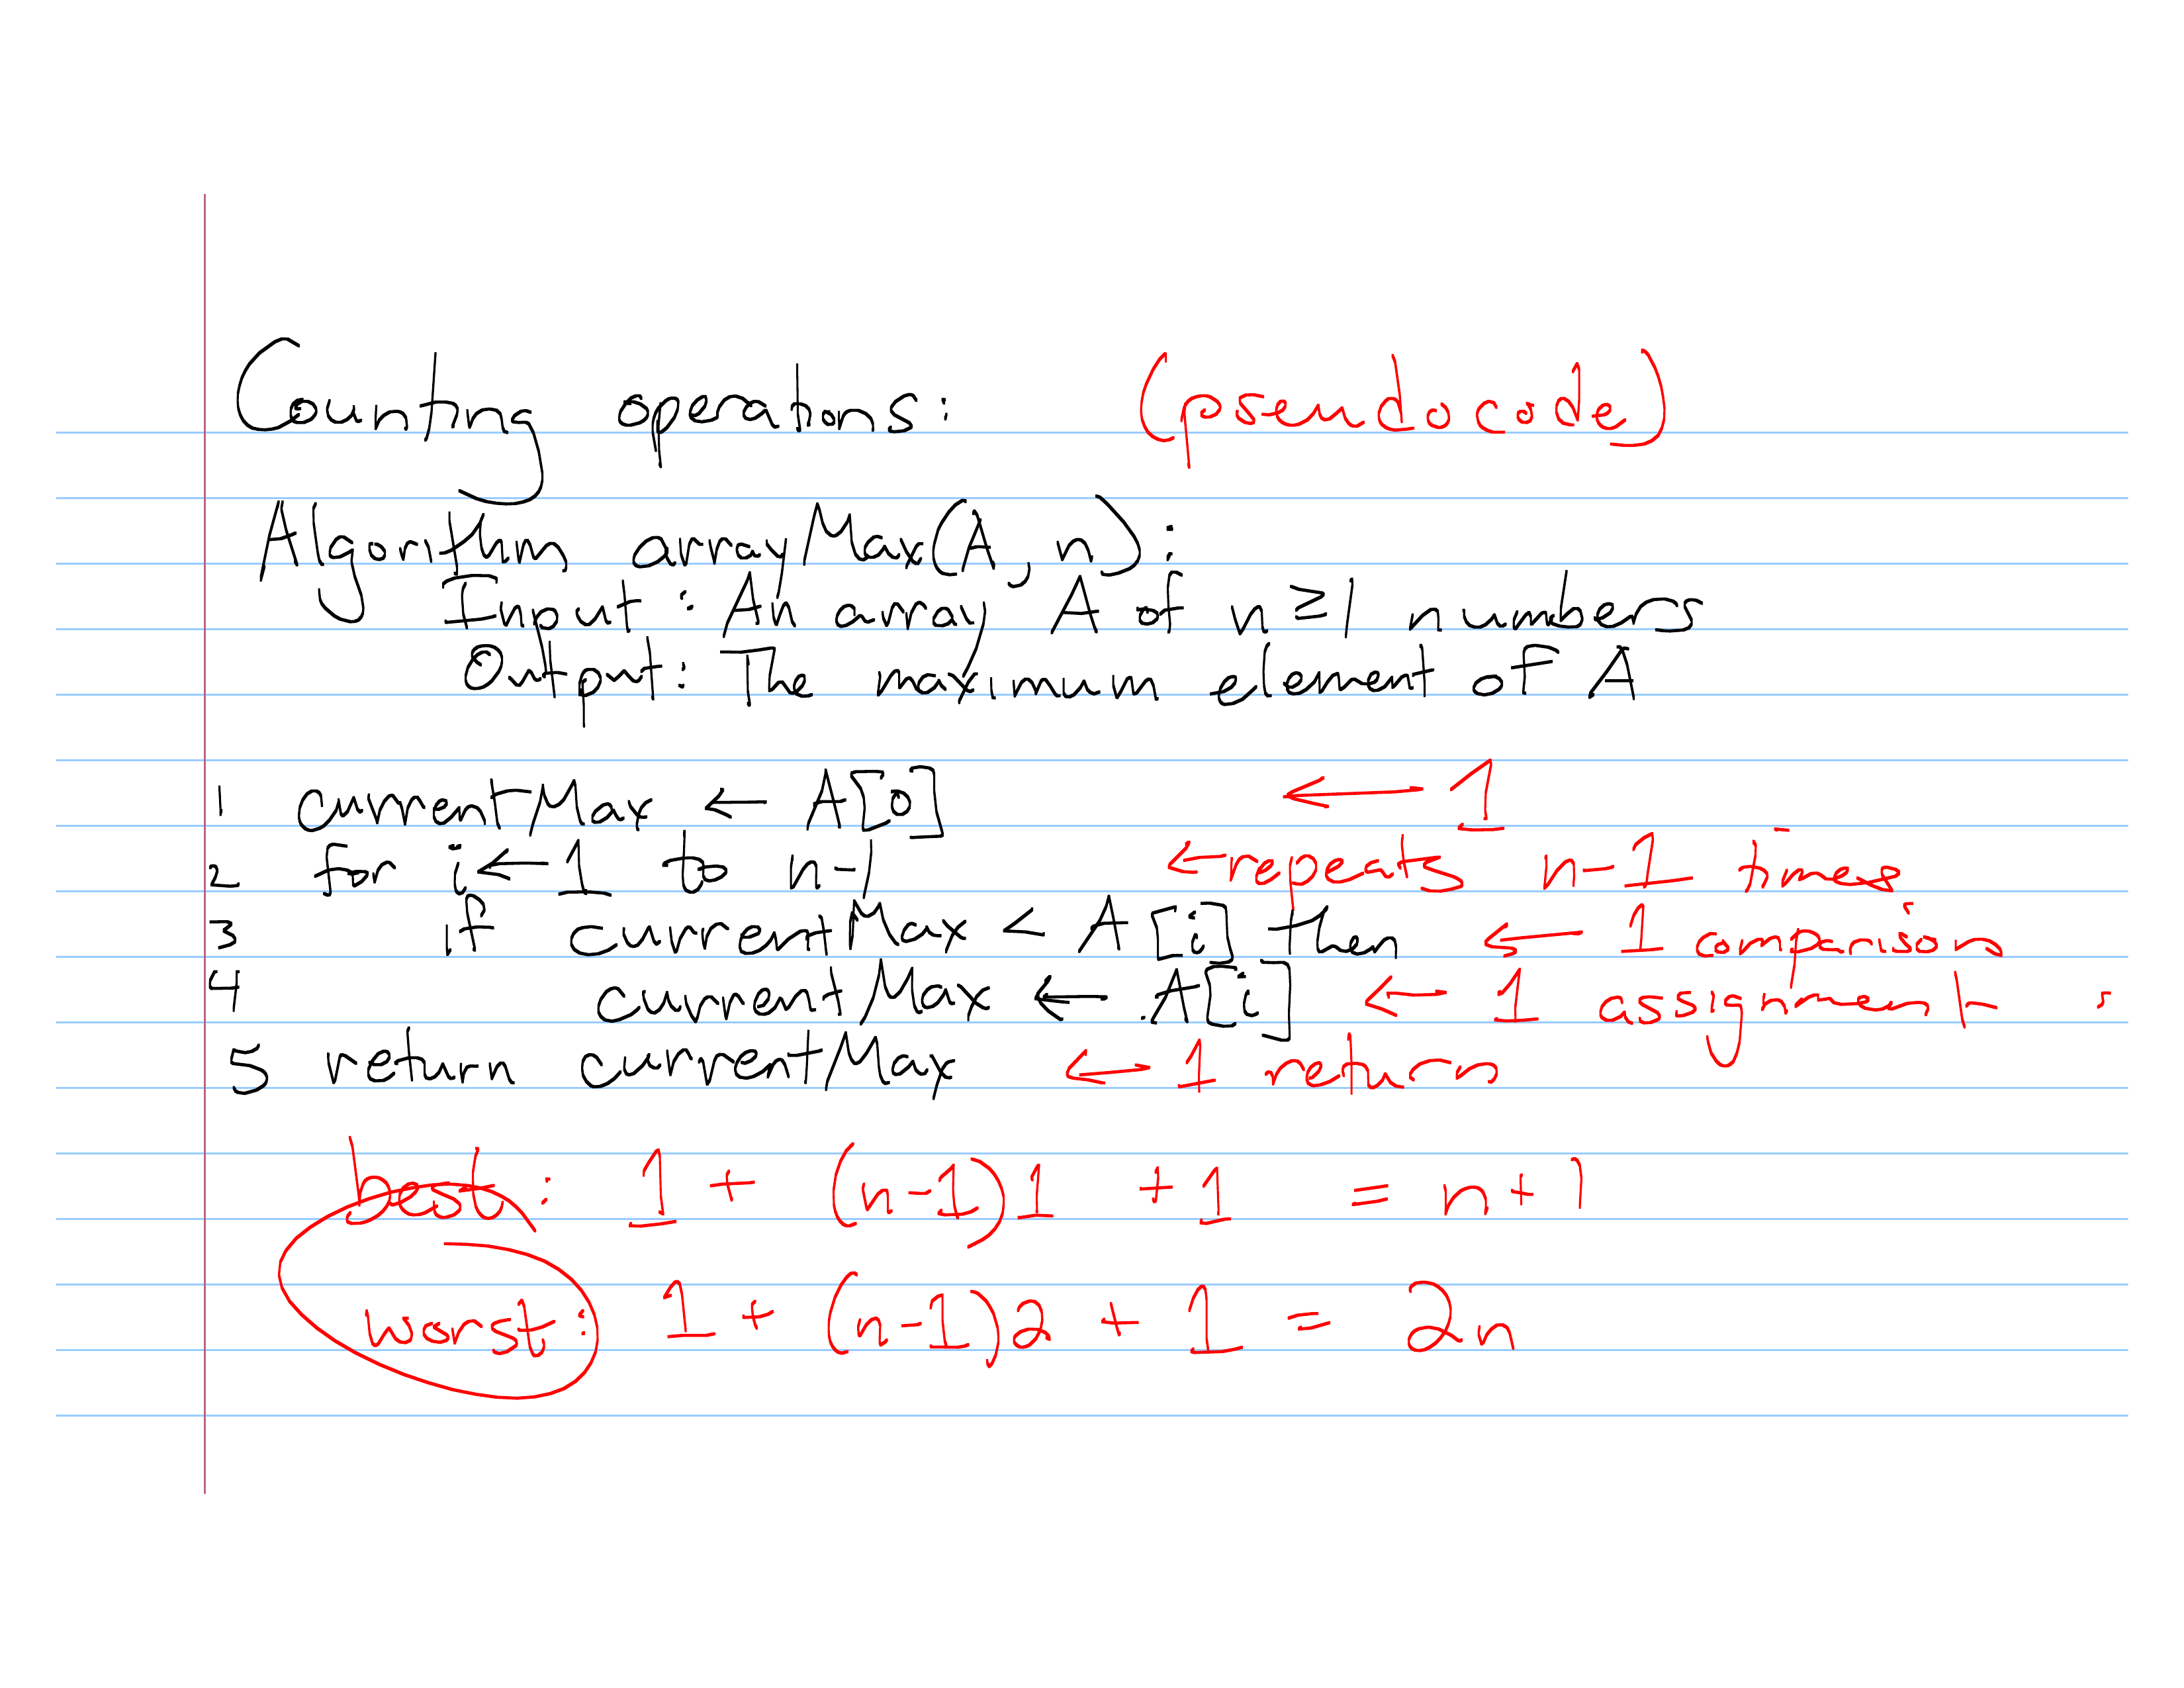 Counting operations: (pseudocode)
Algorithm arrayMax(A, n):
Input: An array A of n ≥ 1 numbers
Output: The maximum element of A
1 currentMax ← A[0] ← 1
2 for i ← 1 to n-1 ← repeats n-1 times
3 if currentMax < A[i] then ← 1 comparison
4 currentMax ← A[i] ← 1 assignment
5 return currentMax ← 1 return
best: 1 + (n-1)1 + 1 = n+1
worst: 1 + (n-1)2 + 1 = 2n